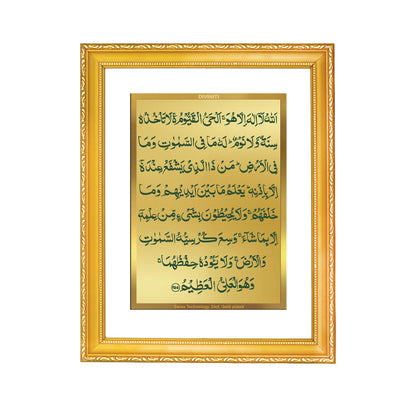 DIVINITI
اَللهُ لَآ اِلٰهَ اِلَّا هُوَ ۚ اَلْحَيُّ الْقَيُّوْمُ ۚ لَا تَاْخُذُهٗ
سِنَةٌ وَّلَا نَوْمٌ ؕ لَهٗ مَا فِي السَّمٰوٰتِ وَمَا
فِي الْاَرْضِ ؕ مَنْ ذَا الَّذِيْ يَشْفَعُ عِنْدَهٗٓ
اِلَّا بِاِذْنِهٖ ؕ يَعْلَمُ مَا بَيْنَ اَيْدِيْهِمْ وَمَا
خَلْفَهُمْ ۚ وَلَا يُحِيْطُوْنَ بِشَيْءٍ مِّنْ عِلْمِهٖٓ
اِلَّا بِمَا شَآءَ ۚ وَسِعَ كُرْسِيُّهُ السَّمٰوٰتِ
وَالْاَرْضَ ۚ وَلَا يَـُٔوْدُهٗ حِفْظُهُمَا ۚ
وَهُوَ الْعَلِيُّ الْعَظِيْمُ ﴿۲۵۵﴾
Swiss Technology 24ct. Gold plated